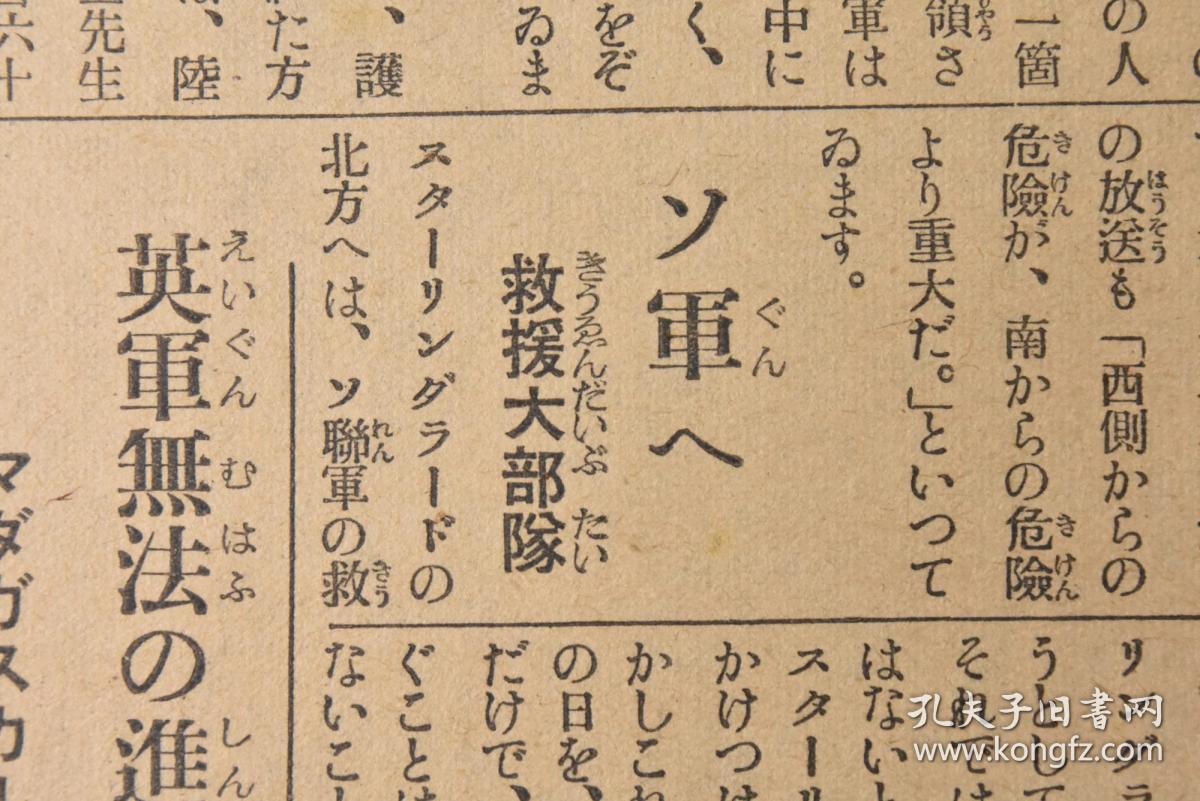 の人
一箇
領さ
軍は
中に
く、
をぞ
ゐま
、護
た方
は、陸
先生
六十
の放送も「西側からの
危險が、南からの危險
より重大だ。」といつて
ゐます。
ソ軍へ
救援大部隊
スターリングラードの
北方へは、ソ聯軍の救
英軍無法の進
マダガスカル
リングラ
うとして
それでは
はないと
スターリ
かけつけ
かしこれ
の日を、
だけで、
ぐことは
ないこと
孔夫子旧书网
www.kongfz.com